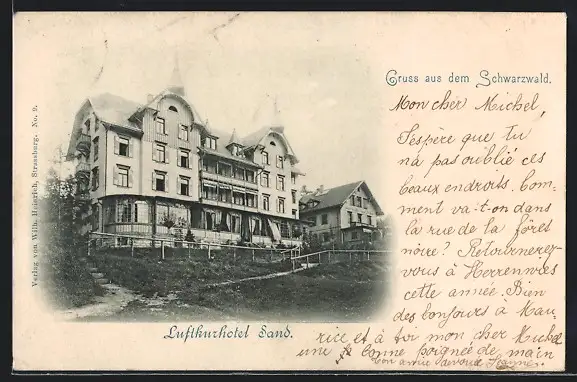 Gruss aus dem Schwarzwald.
Mon cher Michel,
J'espère que tu
n'a pas oublié ces
beaux endroits. Com-
ment va-t-on dans
la rue de la forêt
noire? Retournerez-
vous à Herrenwies
cette année. Bien
des bonjours à Mau-
rice et à toi mon cher Michel
une bonne poignée de main
ton amie
Luftkurhotel Sand.
Verlag von Wilh. Heinrich, Strassburg. No. 2.